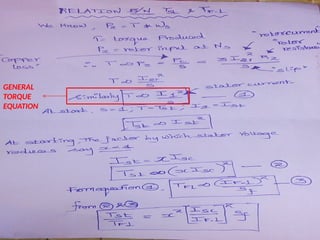 RELATION B/W Tst & TF.L
We know, P2 = T * Ws
T- torque Produced
P2 = rotor input at Ns
"rotor current"
"rotor resistance"
"Copper loss"
∴ T ∝ P2 ∝ Pc/S = 3 I2r² R2/S
"slip"
T ∝ I2r²/S
GENERAL
TORQUE
EQUATION
Similarly T ∝ I1²/S
stator current
①
At start, s=1, T=Tst, I1 = Ist
Tst ∝ Ist²
At starting the factor by which stator voltage
reduces say x =
Ist = x Isc
Tst ∝ (x Isc)² — ②
From equation ①, TFL ∝ (IF.L)²/Sf — ③
from ② & ③
Tst/TF.L = x² [Isc/IF.L]² Sf